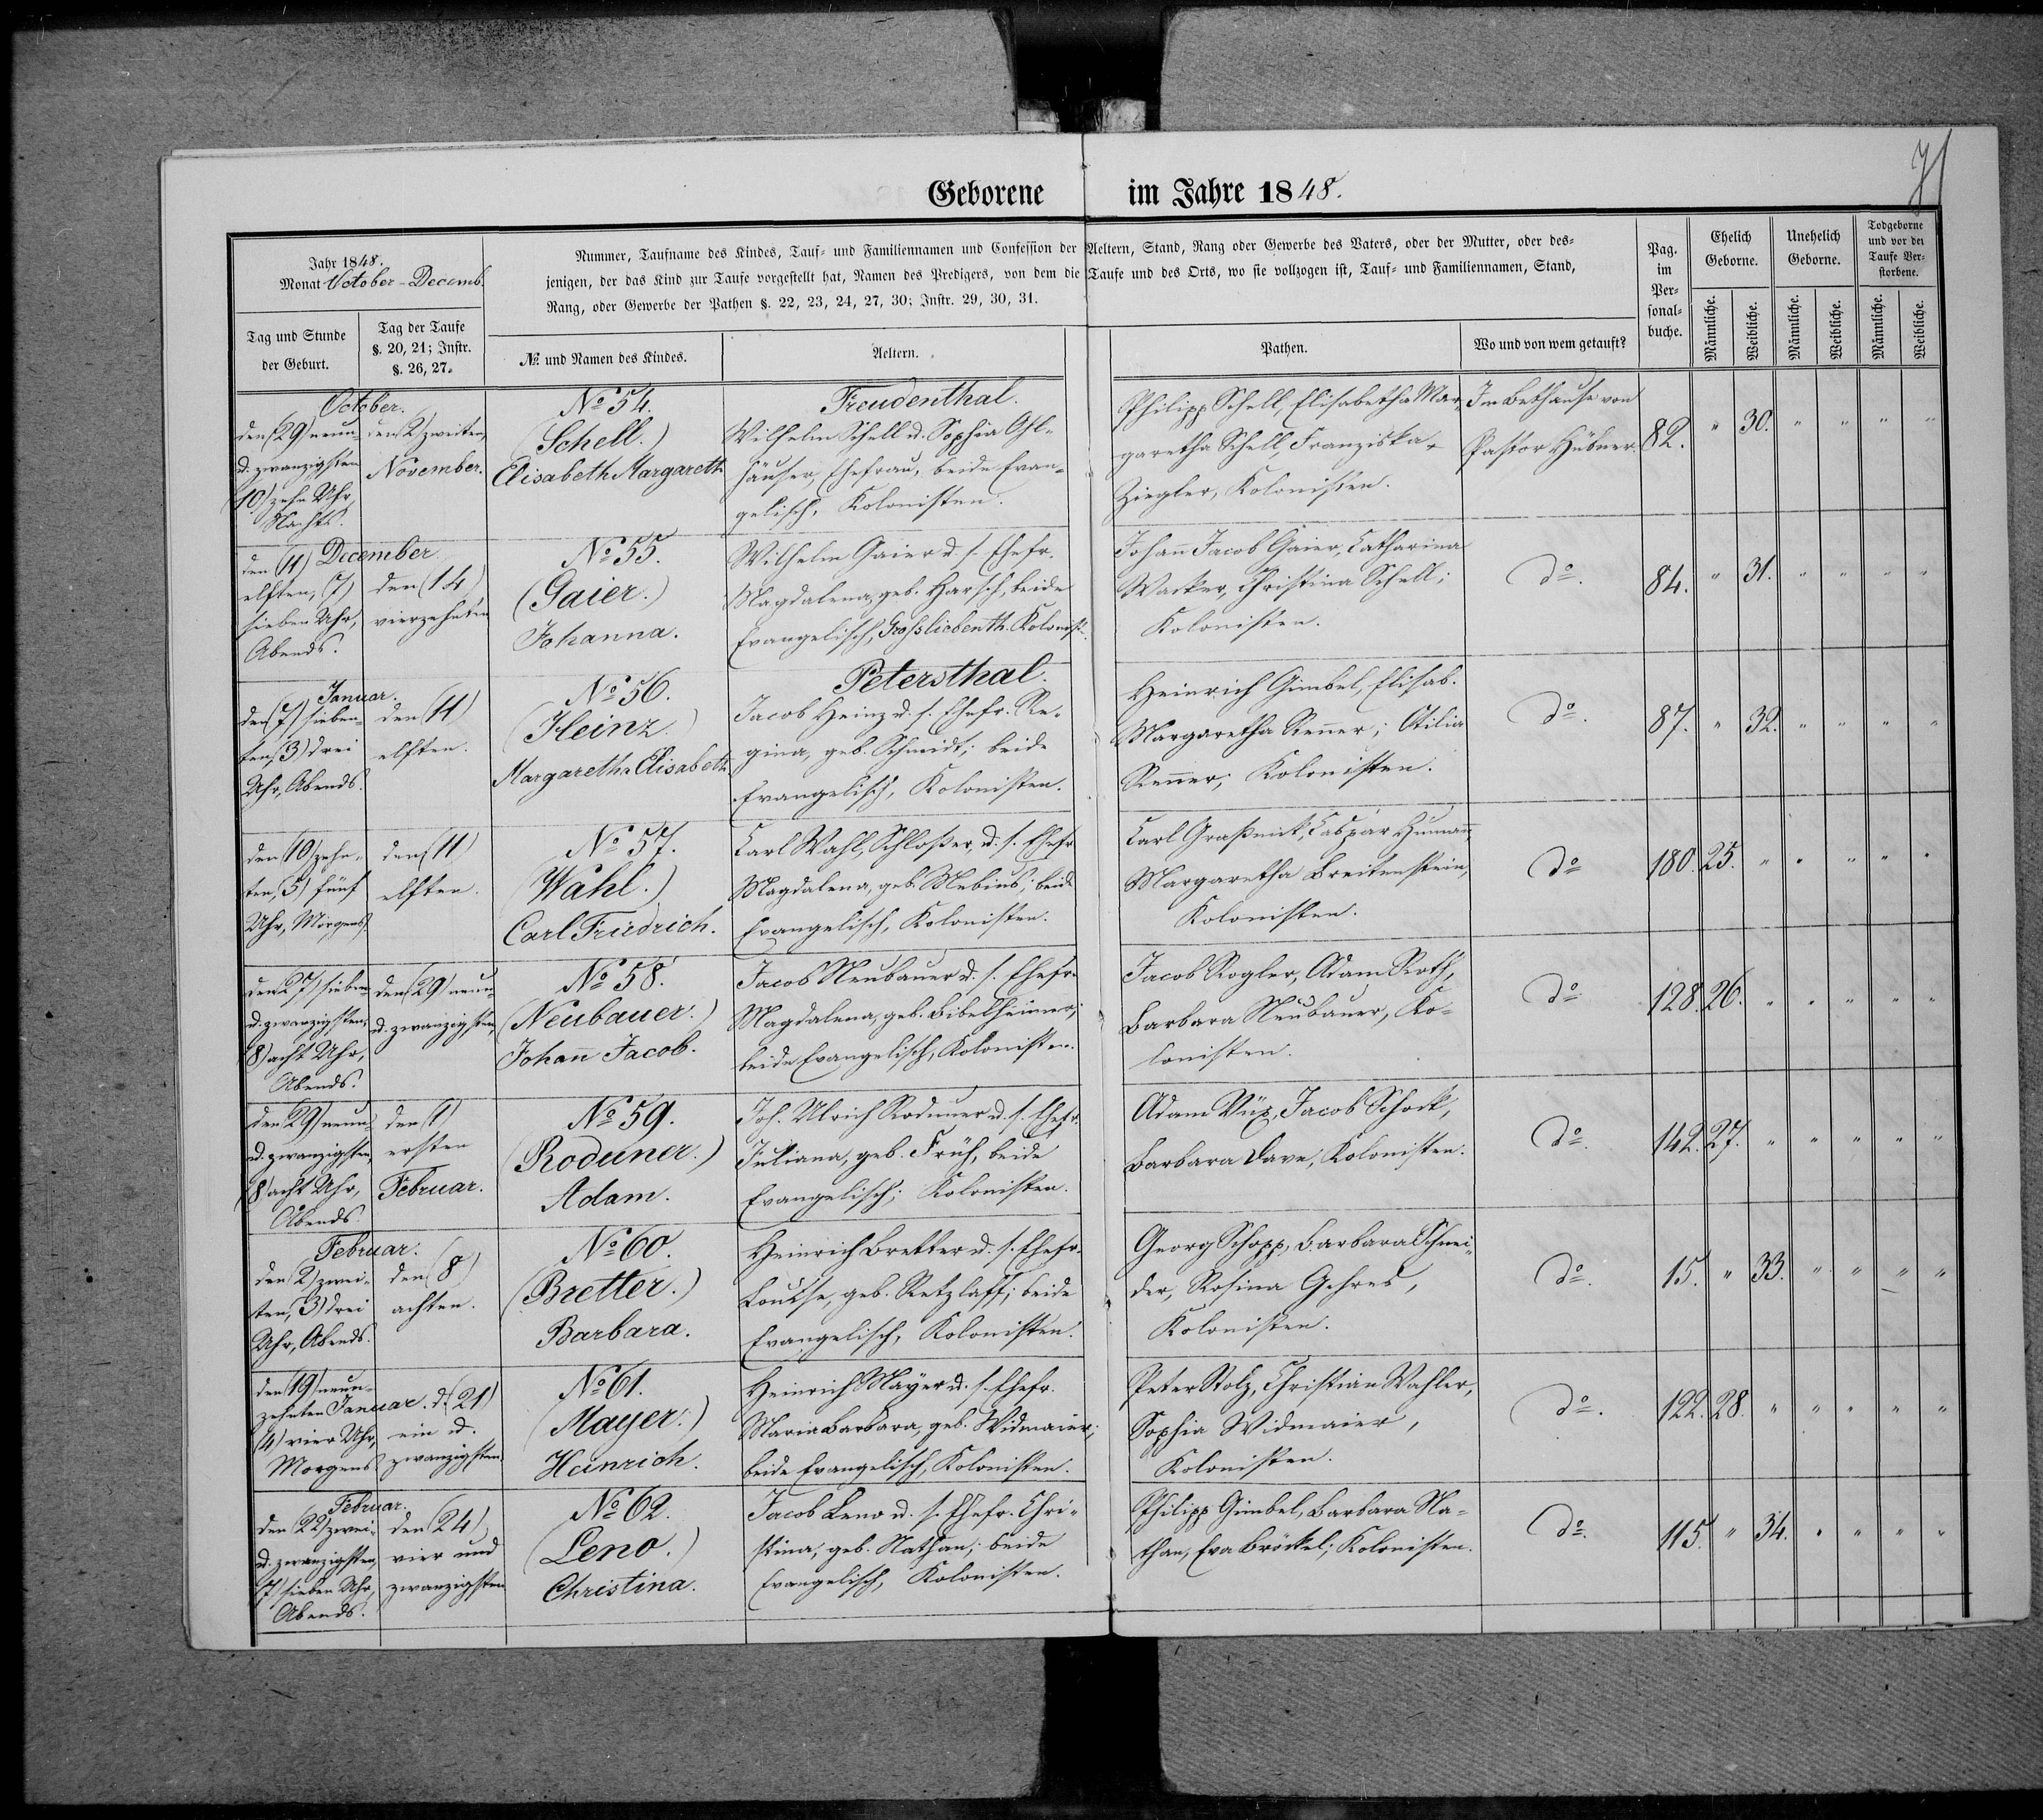 71
Geborene im Jahre 1848.
Jahr 1848.
Monat October - Decemb.
Tag und Stunde
der Geburt.
Tag der Taufe
§. 20, 21; Instr.
§. 26, 27.
Nummer, Taufname des Kindes, Tauf- und Familiennamen und Confession der Aeltern, Stand, Rang oder Gewerbe des Vaters, oder der Mutter, oder des-
jenigen, der das Kind zur Taufe vorgestellt hat, Namen des Predigers, von dem die Taufe und des Orts, wo sie vollzogen ist, Tauf- und Familiennamen, Stand,
Rang, oder Gewerbe der Pathen §. 22, 23, 24, 27, 30; Instr. 29, 30, 31.
№ und Namen des Kindes.
Aeltern.
Pathen.
Wo und von wem getauft?
Pag.
im
Per-
sonal-
buche.
Ehelich
Geborne.
Unehelich
Geborne.
Todgeborne
und vor der
Taufe Ver-
storbene.
Männliche.
Weibliche.
Männliche.
Weibliche.
Männliche.
Weibliche.
October.
den (29) neun-
u. zwanzigsten
(10) zehn Uhr,
Nachts.
den (2) zweiten
November.
No 54.
(Schell.)
Elisabeth Margareth
Freudenthal.
Wilhelm Schell u. Sophia Ohl-
häuser, Ehefrau, beide Evan-
gelisch, Kolonisten.
Philipp Schell, Elisabetha Mar-
garetha Schell, Franziska
Ziegler, Kolonisten.
Im Bethause von
Pastor Hübner.
82. " 30. " " " "
December
den (11)
elften, (7)
sieben Uhr,
Abends.
den (14)
vierzehnten
No 55.
(Gaier.)
Johanna.
Wilhelm Gaier u. s. Ehefr.
Magdalena, geb. Harsch, beide
Evangelisch, Grossliebenth. Kolonist.
Johan̅ Jacob Gaier, Catharina
Wacker, Christina Schell;
Kolonisten.
do.
84. " 31. " " " "
Januar.
den (7) sieben-
ten, (3) drei
Uhr, Abends.
den (11)
elften.
No 56.
(Heinz.)
Margaretha Elisabeth
Petersthal.
Jacob Heinz u. s. Ehefr. Re-
gina, geb. Schmidt; beide
Evangelisch, Kolonisten.
Heinrich Gimbel, Elisab.
Margaretha Ren̅er; Otilia
Ren̅er; Kolonisten.
do.
87. " 32. " " " "
den (10) zehn-
ten, (5) fünf
Uhr, Morgens
den (11)
elften.
No 57.
(Wahl.)
Carl Friedrich.
Carl Wahl, Schloßer, u. s. Ehefr.
Magdalena, geb. Mebius; beide
Evangelisch, Kolonisten.
Carl Graßmik, Caspar Human̅,
Margaretha Breitenstein,
Kolonisten.
do
180. 25. " " " " "
den (27) sieben-
u. zwanzigsten,
(8) acht Uhr,
Abends.
den (29) neun-
u. zwanzigsten
No 58.
(Neubauer.)
Johan̅ Jacob.
Jacob Neubauer u. s. Ehefr.
Magdalena, geb. Bibelheimer;
beide Evangelisch, Kolonisten.
Jacob Rogler, Adam Roth,
Barbara Neubauer, Ko-
lonisten.
do
128. 26. " " " " "
den (29) neun-
u. zwanzigsten,
(8) acht Uhr,
Abends.
den (1)
ersten
Februar.
No 59.
(Roduner.)
Adam.
Joh. Ulrich Roduner u. s. Ehefr.
Juliana, geb. Früh, beide
Evangelisch; Kolonisten.
Adam Vüx, Jacob Schock,
Barbara Dave, Kolonisten.
do.
142. 27. " " " " "
Februar.
den (2) zwei-
ten, (3) drei
Uhr, Abends.
den (8)
achten.
No 60.
(Bretter.)
Barbara.
Heinrich Bretter u. s. Ehefr.
Louise, geb. Retzlaff; beide
Evangelisch, Kolonisten.
Georg Schopp, Barbara Schnei-
der, Rosina Gehres,
Kolonisten.
do.
15. " 33. " " " "
den (19) neun-
zehnten Januar. d. (21)
(4) vier Uhr,
Morgens
ein u.
zwanzigsten
No 61.
(Mayer.)
Heinrich.
Heinrich Mayer u. s. Ehefr.
Maria Barbara, geb. Widmaier;
beide Evangelisch, Kolonisten.
Peter Stolz, Christian Wahler,
Sophia Widmaier,
Kolonisten.
do.
122. 28. " " " " "
Februar.
den (22) zwei-
u. zwanzigsten,
(7) sieben Uhr,
Abends.
den (24)
vier und
zwanzigsten
No 62.
(Leno.)
Christina.
Jacob Leno u. s. Ehefr. Chri-
stina, geb. Nathan; beide
Evangelisch, Kolonisten.
Philipp Gimbel, Barbara Na-
than, Eva Bröckel; Kolonisten.
do.
115. " 34. " " " "